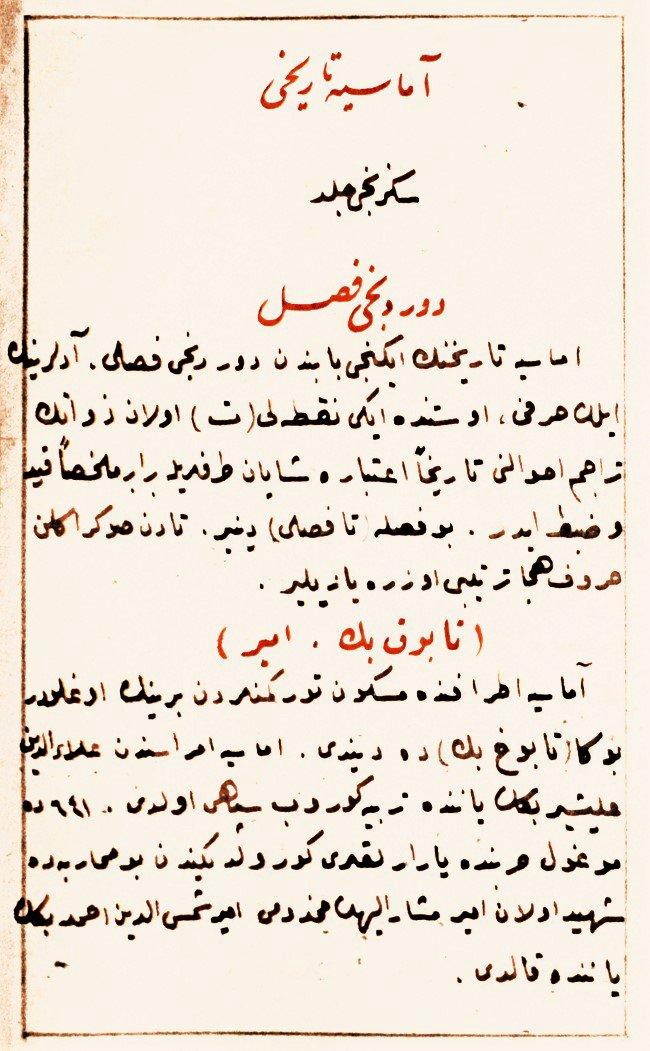 آماسیه تاریخی
سکزنجی جلد
دوردنجی فصل
اماسیه تاریخنك ایکنجی بابندن دوردنجی فصلی. آدلرینك
ایلك حرفی، اوستنده ایکی نقطه‌لی (ت) اولان ذواتك
تراجم احوالنی تاریخاً اعتباره شایان طرفلریله برابر ملخصاً قید
و ضبط ایدر. بو فصله (تا فصلی) دینیر. تادن صوکرا کلن
حروف هجا ترتیبی اوزره یازیلیر.
(تابوق بك. امیر)
آماسیه اطرافنده مسکون تورکمنلردن برینك اوغلیدر
بوکا (تابوغ بك) ده دیندی. اماسیه امراسندن علاءالدین
علیشیر بكك یاننده تربیه کوروب سپاهی اولدی. ٦٤١ ده
موغول حربنده یارارلقلری کورولدیکندن بو محاربه‌ده
شهید اولان امیر مشار الیهك مخدومی امیر شمس الدین احمد بكك
یاننده قالدی.